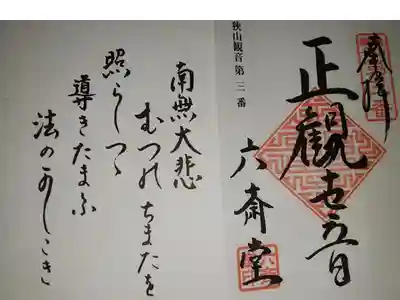 奉拝
正觀世音
六斎堂
狭山観音第三番
南無大悲
むつのちまたを
照らしつゝ
導きたまふ
法のかしこき